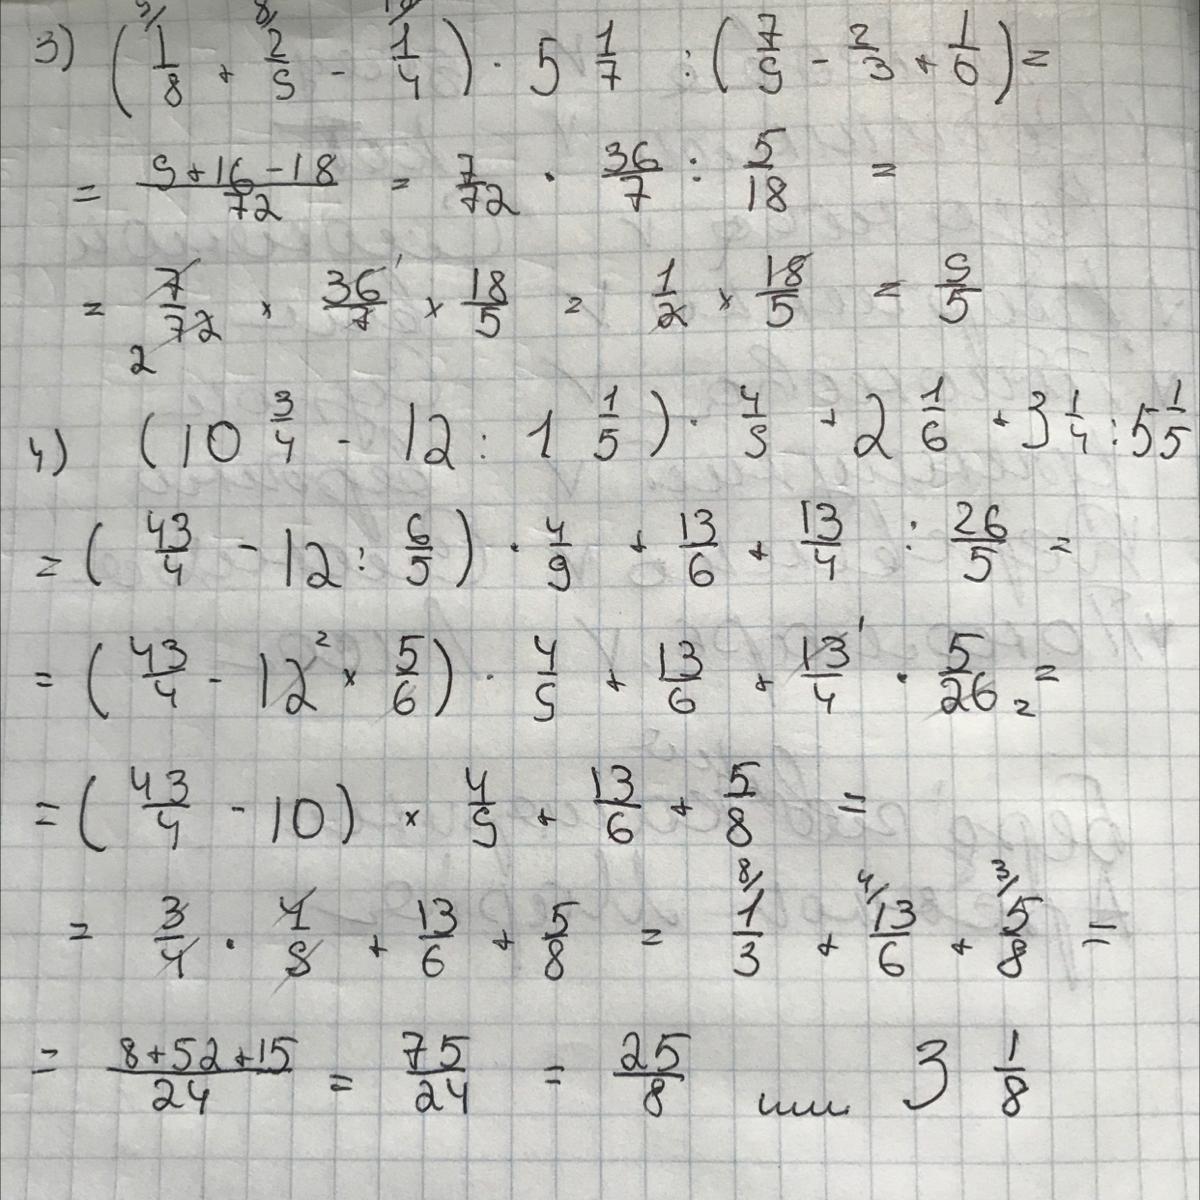 3) (1/8 + 2/9 - 1/4) · 5 1/7 : (7/9 - 2/3 + 1/6) =
= (9+16-18)/72 = 7/72 · 36/7 : 5/18 =
= 7/72 2 × 36/7 1 × 18/5 = 1/2 × 18/5 = 9/5
4) (10 3/4 - 12 : 1 1/5) · 4/9 + 2 1/6 + 3 1/4 : 5 1/5
= (43/4 - 12 : 6/5) · 4/9 + 13/6 + 13/4 : 26/5 =
= (43/4 - 12 2 × 5/6) · 4/9 + 13/6 + 13/4 1 · 5/26 2 =
= (43/4 - 10) × 4/9 + 13/6 + 5/8 =
= 3/4 · 4/9 + 13/6 + 5/8 = 8/ 1/3 + 4/ 13/6 + 3/ 5/8 =
= (8+52+15)/24 = 75/24 = 25/8 или 3 1/8